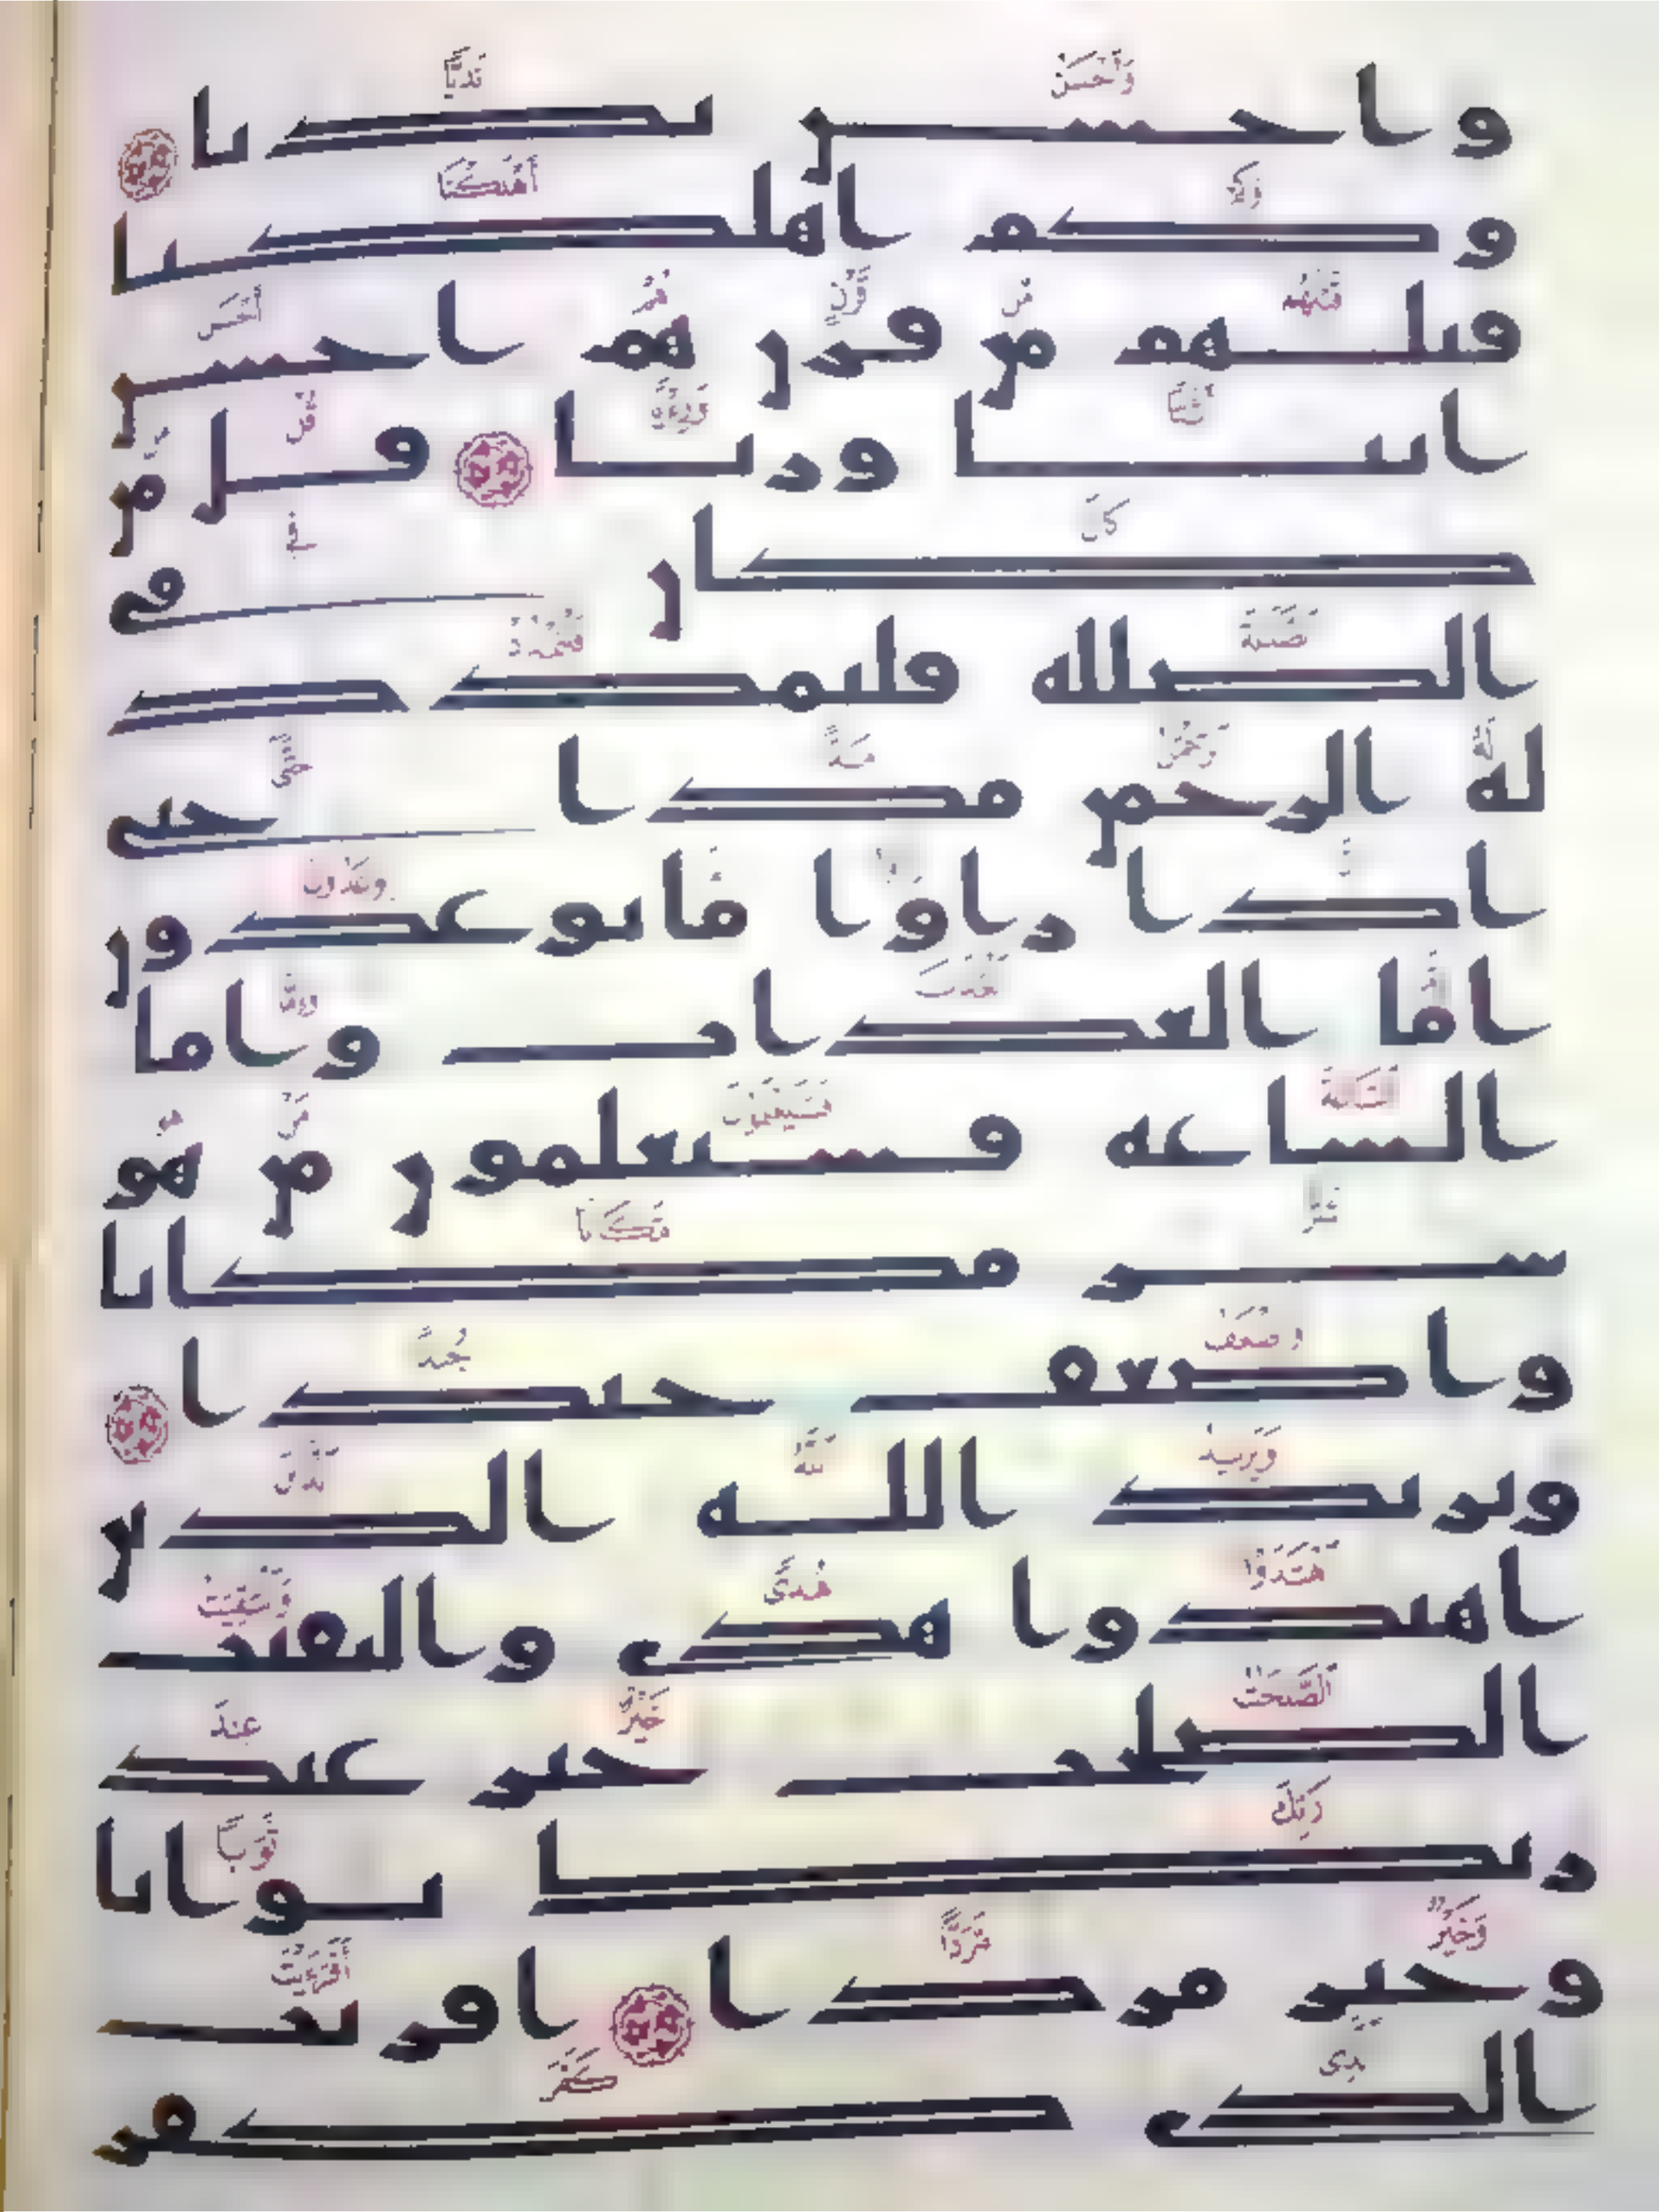 واحسن نديا
وكم اهلكنا
قبلهم من قرن هم احسن
اثثا وريا قل من
كان في
الضلله فليمدد
له الرحمن مدا حتى
اذا راوا ما يوعدون
اما العذاب واما
الساعه فسيعلمون من هو
شر مكانا
واضعف جندا
ويزيد الله الذين
اهتدوا هدى والبقيت
الصلحت خير عند
ربك ثوابا
وخير مردا افريت
الذى كفر